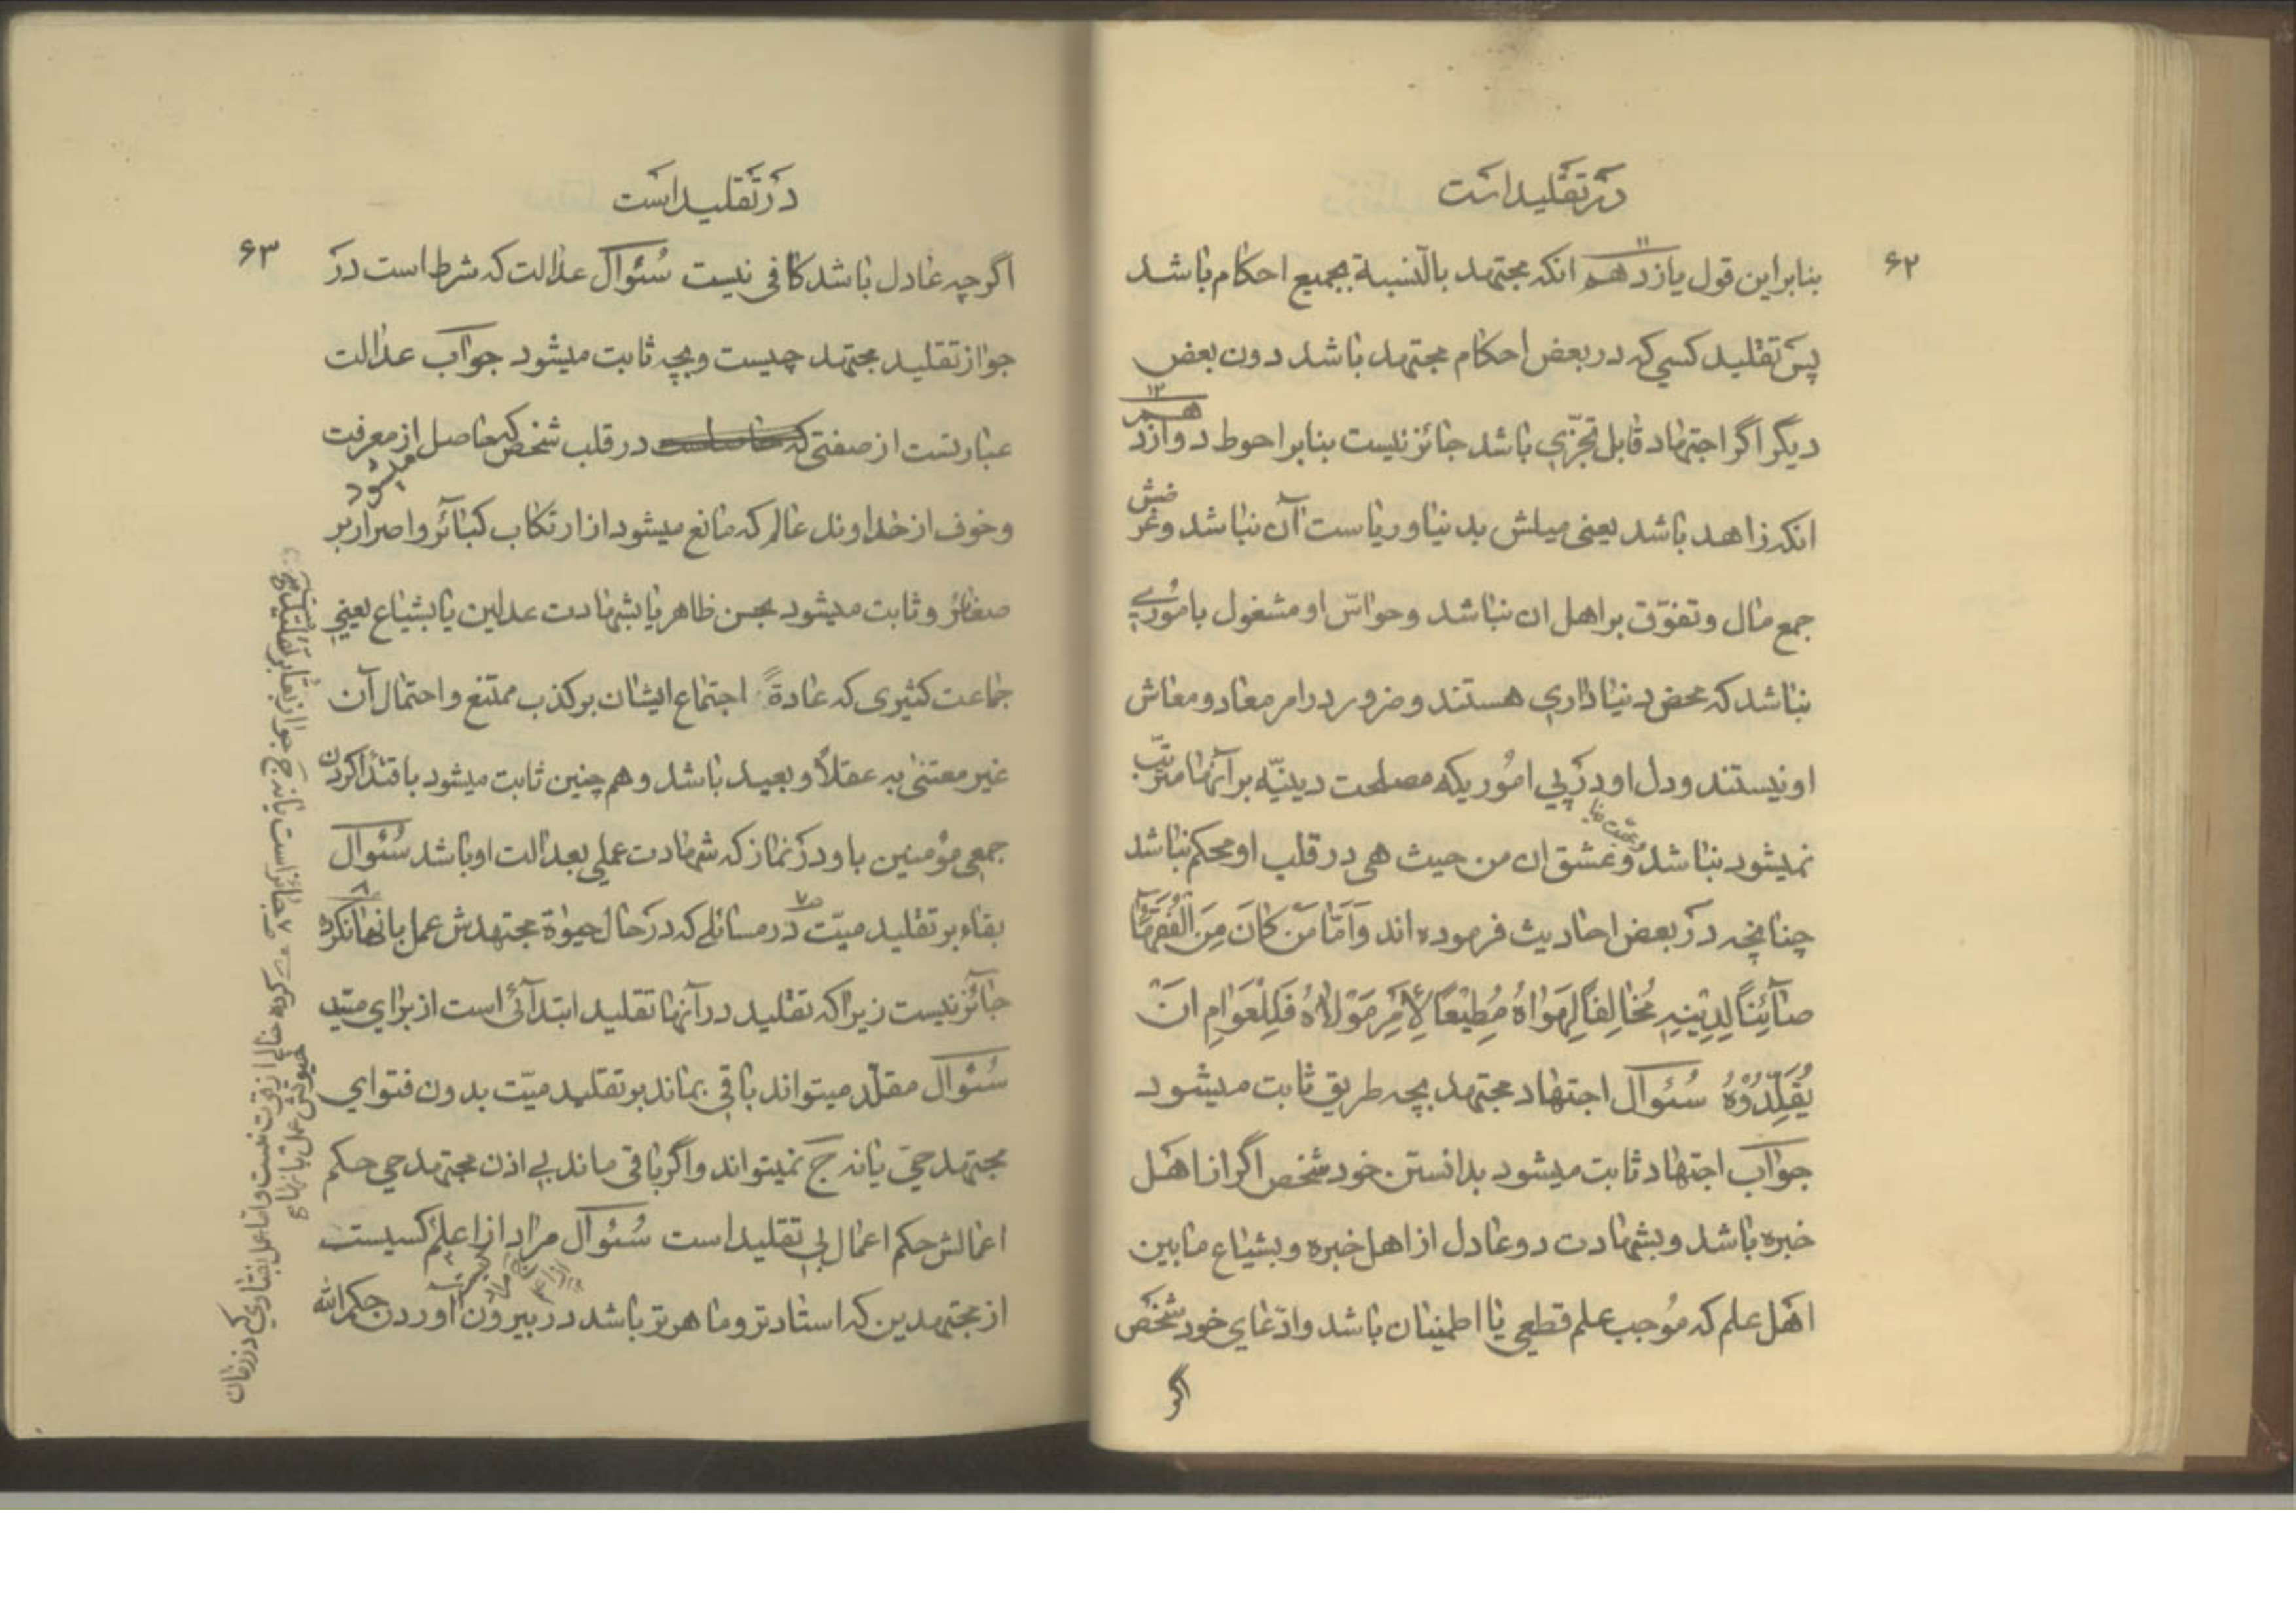 در تقلید است
۶۲
بنابر این قول یازدهم ۱۱ انکه مجتهد بالنسبة بجمیع احکام باشد
پس تقلید کسی که در بعض احکام مجتهد باشد دون بعض
دیگر اگر اجتهاد قابل تجزّی باشد جائز نیست بنابر احوط دوازدهم ۱۲
انکه زاهد باشد یعنی میلش بدنیا و ریاست آن نباشد و غرضش
جمع مال و تفوّق بر اهل ان نباشد و حواسّ او مشغول باموری
نباشد که محض دنیاداری هستند و ضرور در امر معاد و معاش
او نیستند و دل او در پی اموریکه مصلحت دینیّه بر آنها مترتّب
نمیشود نباشد و عشق ان من حیث هی در قلب او محکم نباشد
چنانچه در بعض احادیث فرموده اند وَاَمّا مَنْ کانَ مِنَ الْفُقَهآءِ
صآئِنًا لِدِیْنِهِ مُخالِفًا لِهَواهُ مُطِیْعًا لِاَمْرِ مَوْلاهُ فَلِلْعَوامِ اَنْ
یُقَلِّدُوْهُ سُئوال اجتهاد مجتهد بچه طریق ثابت میشود
جواب اجتهاد ثابت میشود بدانستن خود شخص اگر از اهل
خبره باشد و بشهادت دو عادل از اهل خبره و بشیاع مابین
اهل علم که مُوجب علم قطعی یا اطمینان باشد و ادّعای خود شخص
اگر
در تقلید است
۶۳
اگرچه عادل باشد کافی نیست سُئوال عدالت که شرط است در
جواز تقلید مجتهد چیست و بچه ثابت میشود جواب عدالت
عبارتست از صفتی که حاصلست در قلب شخص که حاصل از معرفت
میشود
و خوف از خداوند عالم که مانع میشود از ارتکاب کبائر و اصرار بر
صغائر و ثابت میشود بحسن ظاهر یا بشهادت عدلین یا بشیاع یعنی
جماعت کثیری که عادةً اجتماع ایشان بر کذب ممتنع و احتمال آن
غیر معتنی به عقلاً و بعید باشد و هم چنین ثابت میشود باقتدا کردن
جمعی مؤمنین باو در نماز که شهادت عملی بعدالت او باشد سُئوال
بقاء بر تقلید میّت در مسائلی که در حال حیوة مجتهدش عمل بانها نکرده
جائز نیست زیرا که تقلید در آنها تقلید ابتدائی است از برای میّت
سُئوال مقلّد میتواند باقی بماند بر تقلید میّت بدون فتوای
مجتهد حیّ یا نه ج نمیتواند و اگر باقی ماند بی اذن مجتهد حی حکم
اعمالش حکم اعمال بی تقلید است سُئوال مراد از اعلم کیست
از مجتهدین که استادتر و ماهرتر باشد در بیرون آوردن حکم الله
جائز است یا نه ج جواز بقا بر تقلید
کرده خالی از قوت نیست و اما عمل بفتاوی که در زمان
حیوتش عمل بانها